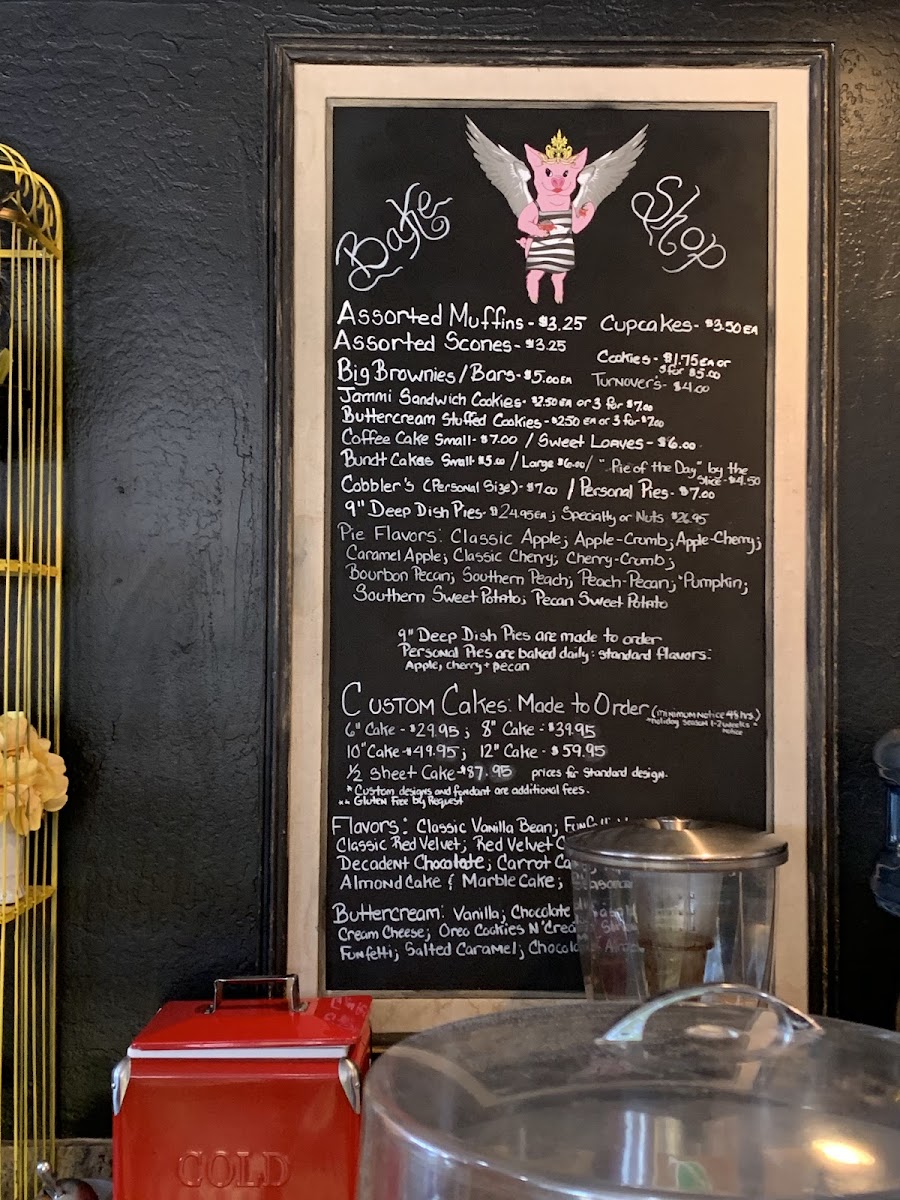 Bake Shop
Assorted Muffins - $3.25 Cupcakes - $3.50 EA
Assorted Scones - $3.25
Cookies - $1.75 EA or
3 for $5.00
Big Brownies / Bars - $5.00 EA Turnover's - $4.00
Jammi Sandwich Cookies - $2.50 EA or 3 for $7.00
Buttercream Stuffed Cookies - $2.50 EA or 3 for $7.00
Coffee Cake Small - $7.00 / Sweet Loaves - $6.00
Bundt Cakes Small $5.00 / Large $6.00 / "Pie of the Day" by the
slice - $4.50
Cobbler's (Personal Size) - $7.00 / Personal Pies - $7.00
9" Deep Dish Pies - $24.95 EA; Specialty or Nuts $26.95
Pie Flavors: Classic Apple; Apple-Crumb; Apple-Cherry;
Caramel Apple; Classic Cherry; Cherry-Crumb;
Bourbon Pecan; Southern Peach; Peach-Pecan; *Pumpkin;
Southern Sweet Potato; Pecan Sweet Potato
9" Deep Dish Pies are made to order
Personal Pies are baked daily: standard flavors:
Apple, cherry + pecan
Custom Cakes: Made to Order (minimum notice 48 hrs.)
*holiday season 1-2 weeks *
notice
6" Cake - $29.95; 8" Cake - $39.95
10" Cake - $49.95; 12" Cake - $59.95
1/2 Sheet Cake - $87.95 prices for standard design.
* Custom designs and fondant are additional fees.
** Gluten Free by Request
Flavors: Classic Vanilla Bean; Funfetti
Classic Red Velvet; Red Velvet
Decadent Chocolate; Carrot
Almond Cake & Marble Cake;
Buttercream: Vanilla; Chocolate
Cream Cheese; Oreo Cookies N'
Funfetti; Salted Caramel;
COLD